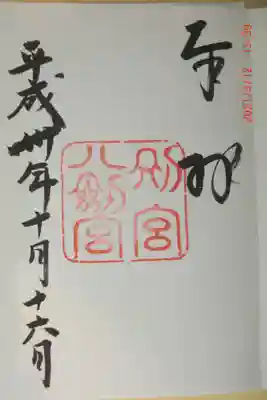 奉拝
別宮
八剣宮
平成卅年十月十六日